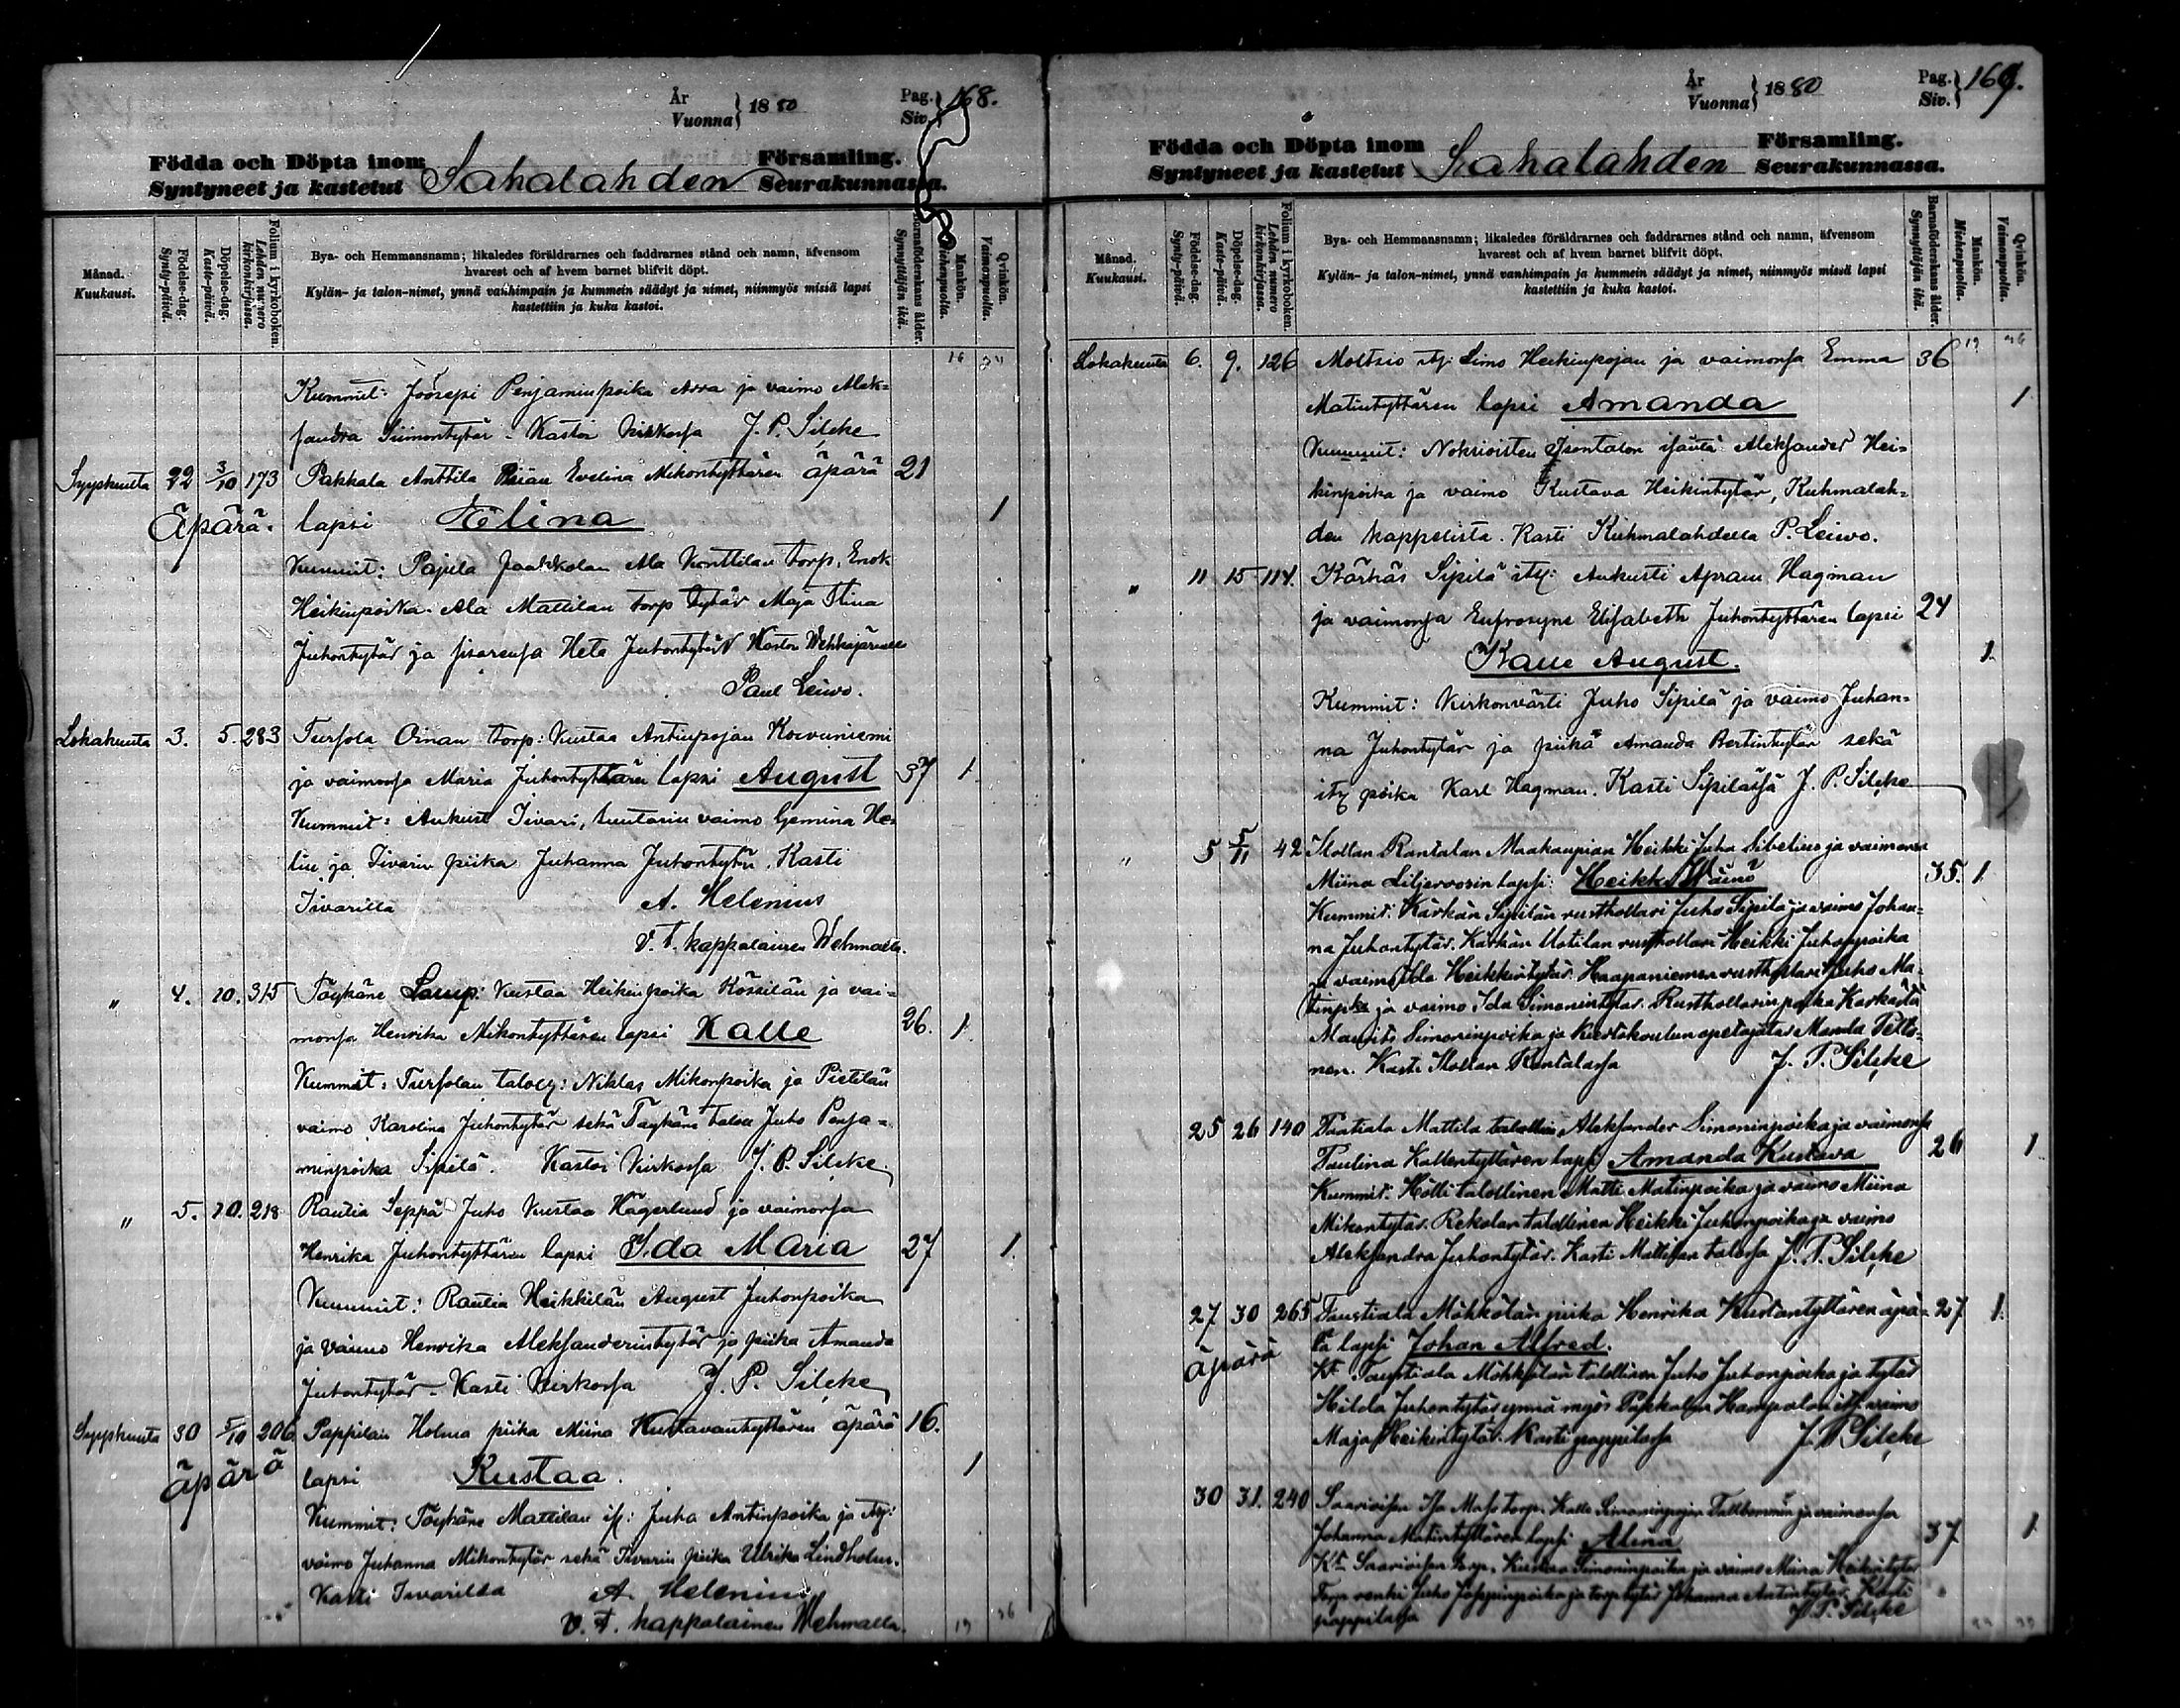 År
Vuonna } 1880
Pag.
Siv. } 168.
Födda och Döpta inom
Syntyneet ja kastetut
Sahalahden
Församling.
Seurakunnassa.
Månad.
Kuukausi.
Födelse-dag.
Synty-päivä.
Döpelse-dag.
Kaste-päivä.
Folium i kyrkoboken.
Lehden numero kirkonkirjassa.
Bya- och Hemmansnamn; likaledes föräldrarnes och faddrarnes stånd och namn, äfvensom
hvarest och af hvem barnet blifvit döpt.
Kylän- ja talon-nimet, ynnä vanhimpain ja kummein säädyt ja nimet, niinmyös missä lapsi
kastettiin ja kuka kastoi.
Barnaföderskans ålder.
Synnyttäjän ikä.
Mankön.
Miehenpuolta.
Qvinkön.
Vaimonpuolta.
Kummit: Joosepi Penjaminpoika Arra ja vaimo Alek=
sandra Siimontytär. Kastoi kirkossa J. P. Silcke
Syyskuuta 22 3/10 173 Pakkala Anttila Piian Evelina Mikontyttären äpärä 21
Äpärä. lapsi Elina 1
Kummit: Pajula Jaakkolan Ala Konttilan torp. Enok
Heikinpoika. Ala Mattilan torp tytär Maja Stina
Juhontytär ja sisarensa Heta Juhontytär Kastoi Wehkajärvellä
Paul Leiwo.
Lokakuuta 3. 5. 283 Tursola Oinan torp: Kustaa Antinpojan Koivuniemi
ja vaimonsa Maria Juhontyttären lapsi August 37 1
Kummit: August Iivari, luutarin vaimo Gemina He=
lin ja Iivarin piika Juhanna Juhontytär. Kasti
Iivarilla A. Helenius
V. t. kappalainen Wehmaalla.
" 4. 10. 315 Töykänä Lamp: Kustaa Heikinpoika Kössilän ja vai=
monsa Henrika Mikontyttären lapsi Kalle 26. 1
Kummit: Tursolan taloll: Niklas Mikonpoika ja Pietilän
vaimo Karolina Juhontytär sekä Töykänä taloll Juho Penja=
minpoika Sipilä. Kastoi Kirkossa J. P. Silcke
" 5. 10. 218 Rautia Seppä Juho Kustaa Hägerlund ja vaimonsa
Henrika Juhontyttären lapsi Ida Maria 27 1.
Kummit: Rautia Heikkilän August Juhonpoika
ja vaimo Henrika Aleksanderintytär ja piika Amanda
Juhontytär. Kasti Kirkossa J. P. Silcke
Syyskuuta 30 5/10 206 Pappilan Holma piika Miina Kustavantyttären äpärä 16.
äpärä lapsi Kustaa. 1
Kummit: Töykänä Mattilan is: Juha Antinpoika ja
vaimo Juhanna Mikontytär sekä Iivarin piika Ulrika Lindholm.
Kasti Iivarilla A. Helenius
V. t. kappalainen Wehmaalla.
År
Vuonna } 1880
Pag.
Siv. } 169.
Födda och Döpta inom
Syntyneet ja kastetut
Sahalahden
Församling.
Seurakunnassa.
Månad.
Kuukausi.
Födelse-dag.
Synty-päivä.
Döpelse-dag.
Kaste-päivä.
Folium i kyrkoboken.
Lehden numero kirkonkirjassa.
Bya- och Hemmansnamn; likaledes föräldrarnes och faddrarnes stånd och namn, äfvensom
hvarest och af hvem barnet blifvit döpt.
Kylän- ja talon-nimet, ynnä vanhimpain ja kummein säädyt ja nimet, niinmyös missä lapsi
kastettiin ja kuka kastoi.
Barnaföderskans ålder.
Synnyttäjän ikä.
Mankön.
Miehenpuolta.
Qvinkön.
Vaimonpuolta.
Lokakuuta 6. 9. 126 Moltsio itj. Simo Heikinpojan ja vaimonsa Emma 36
Matintyttären lapsi Amanda 1
Kummit: Nokrioisten Isontalon isäntä Aleksander Hei=
kinpoika ja vaimo Kustava Heikintytär, Kuhmalah=
den kappelista. Kasti Kuhmalahdella P. Leiwo.
" 11 15 114. Kärkäs Sipilä itj: Aukusti Apram Hagman
ja vaimonsa Eufrosyne Elisabeth Juhontyttären lapsi 24
Kalle August. 1.
Kummit: Kirkonvärti Juho Sipilä ja vaimo Juhan=
na Juhontytär ja piika Amanda Bertintytär sekä
itj poika Karl Hagman. Kasti Sipilässä J. P. Silcke
" 5 5/11 42 Rantalan Maakaupian Heikki Juha Sibelius ja vaimonsa
Miina Liljeroosin lapsi: Heikki Wäinö 35. 1
Kummit: Kärkän Sipilän rusthollari Juho Sipilä ja vaimo Johan=
na Juhontytär. Kärkän Uotilan rusthollari Heikki Juhonpoika
ja vaimo Ida Heikkintytär. Haapaniemen rusthollari Juho Ma=
tinpoika ja vaimo Ida Simonintytär. Rusthollarin poika Kärkästä
Maurits Simoninpoika ja Kiertokoulun opettajatar Manda Petto=
nen. Kasti Rantalassa J. P. Silcke
25 26 140 Tiatiala Mattila talollinen Aleksander Simoninpoika ja vaimonsa
Paulina Kallentyttären lapsi Amanda Kustava 26 1
Kummit: Hölli talollinen Matti Matinpoika ja vaimo Miina
Mikontytär. Rekolan talollinen Heikki Juhonpoika ja vaimo
Aleksandra Juhontytär. Kasti Mattilan talossa J. P. Silcke
27 30 265 Taustiala Möhkölän piika Henrika Kustantyttären äpä= 27 1.
äpärä rä lapsi Johan Alfred.
Kt Taustiala Möhkölän talollinen Juho Juhonpoika ja tytär
Hilda Juhontytär ynnä myös Pakkalan Hampalan itj vaimo
Maja Heikintytär. Kasti pappilassa J. P. Silcke
30 31. 240 Saarioisen Iso torp. Kalle Simoninpojan ja vaimonsa
Johanna Matintyttären lapsi Alina 37 1
Kt Saarioisen torp. Kustaa Simoninpoika ja vaimo Miina Heikintytär
Torp. renki Juho ja torp tytär Johanna Antintytär. Kasti
pappilassa J. P. Silcke